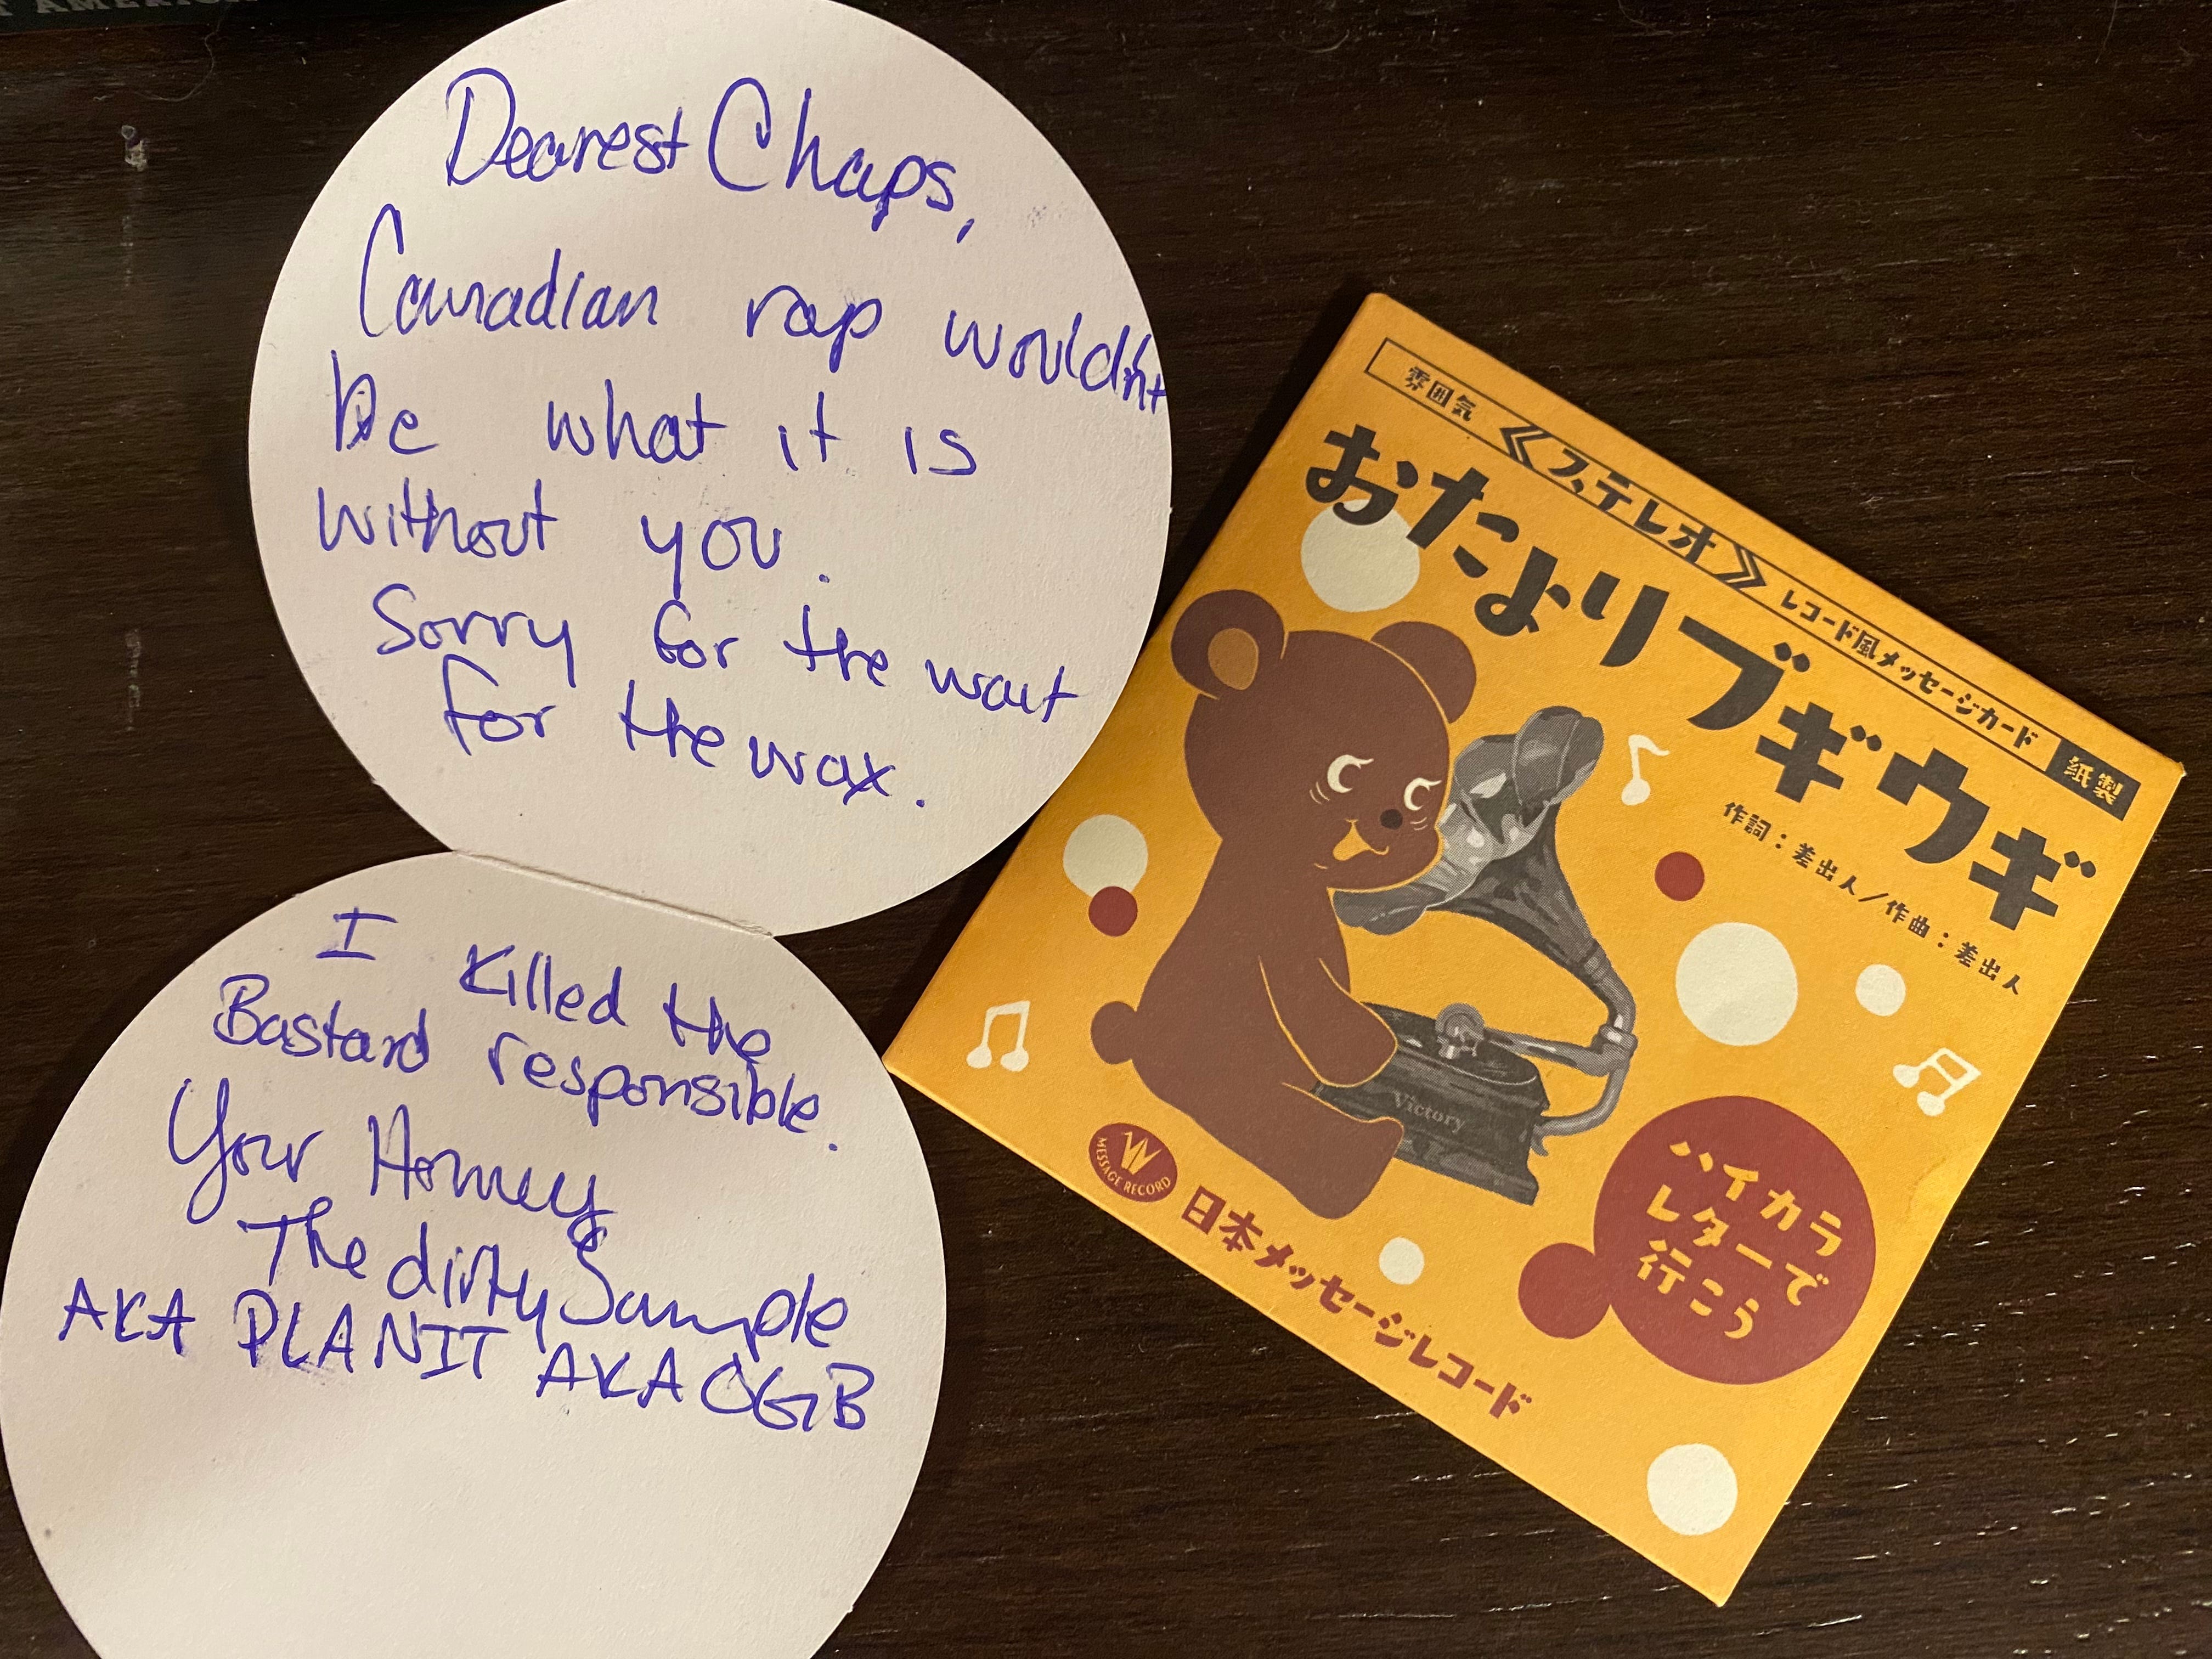 AMERICA
Dearest Chaps,
Canadian rap wouldn't
be what it is
without you.
Sorry for the wait
for the wax.
I Killed the
Bastard responsible.
Your Homey
The dirty Sample
AKA PLANIT AKA OGB
雰囲気《ステレオ》レコード風メッセージカード 紙製
おたよりブギウギ
作詞：差出人／作曲：差出人
Victory
ハイカラ
レターで
行こう
MESSAGE RECORD
日本メッセージレコード